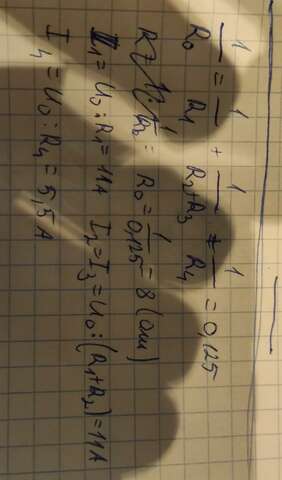 1/R0 = 1/R1 + 1/(R2+R3) + 1/R4 = 0,125
R0 = 1/0,125 = 8 (ом)
I1 = U0 : R1 = 11A I2 = I3 = U0 : (R1+R2) = 11A
I4 = U0 : R4 = 5,5 A